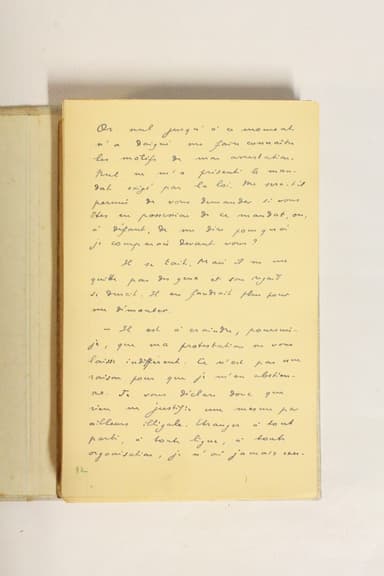 Or nul jusqu'à ce moment
n'a daigné me faire connaître
les motifs de mon arrestation.
Nul ne m'a présenté le man-
dat exigé par la loi. Me sera-t-il
permis de vous demander si vous
êtes en possession de ce mandat, ou,
à défaut, de me dire pourquoi
je comparais devant vous ?
Il se tait. Mais il ne me
quitte pas des yeux et son regard
se durcit. Il en faudrait plus pour
me démonter.
— Il est à craindre, poursuis-
je, que ma protestation ne vous
laisse indifférent. Ce n'est pas une
raison pour que je m'en abstien-
ne. Je vous déclare donc que
rien ne justifie une mesure par
ailleurs illégale. Etranger à tout
parti, à toute ligue, à toute
organisation, je n'ai jamais
92